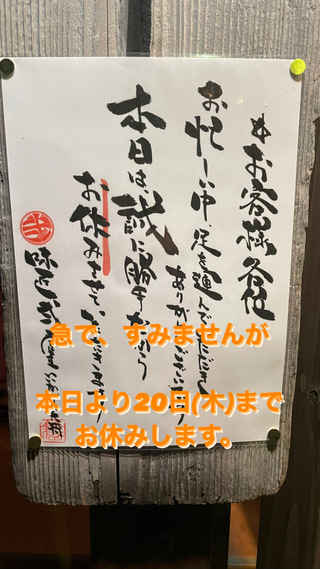 お客様各位
お忙しい中、足を運んでいただき
ありがとうございます
本日は、誠に勝手ながら
お休みさせていただきます
急で、すみませんが
本日より20日(木)まで
お休みします。